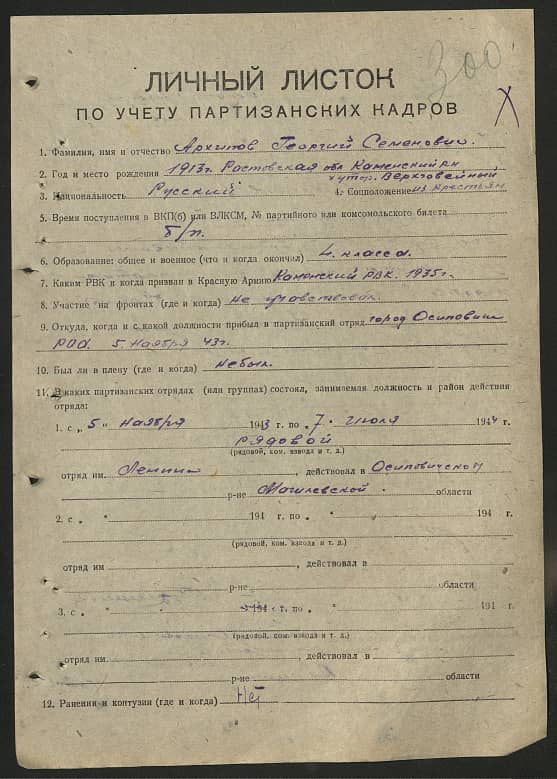 300
ЛИЧНЫЙ ЛИСТОК
ПО УЧЕТУ ПАРТИЗАНСКИХ КАДРОВ
1. Фамилия, имя и отчество Архипов Георгий Семенович.
2. Год и место рождения 1913г. Ростовская обл Каменский рн
хутор. Верхговейный
3. Национальность Русский 4. Соцположение из крестьян
5. Время поступления в ВКП(б) или ВЛКСМ, № партийного или комсомольского билета
б/п.
6. Образование: общее и военное (что и когда окончил) 4. класса.
7. Каким РВК и когда призван в Красную Армию Каменский РВК. 1935г.
8. Участие на фронтах (где и когда) Не участвовал.
9. Откуда, когда и с какой должности прибыл в партизанский отряд город Осиповичи
РОА. 5. Ноября 43г.
10. Был ли в плену (где и когда) небыл.
11. В каких партизанских отрядах (или группах) состоял, занимаемая должность и район действия
отряда:
1. с „ 5 " ноября 1943 г. по „ 7 " июля 1944 г.
рядовой
(рядовой, ком. взвода и т. д.)
отряд им. Ленина , действовал в Осиповичском
р-не Магилевской. области
2. с „ " 194 г. по „ " 194 г.
(рядовой, ком. взвода и т. д.)
отряд им , действовал в
р-не области
3. с „ " 194 г. по „ " 194 г.
(рядовой, ком. взвода и т. д.)
отряд им. , действовал в
р-не области
12. Ранения и контузии (где и когда) Нет